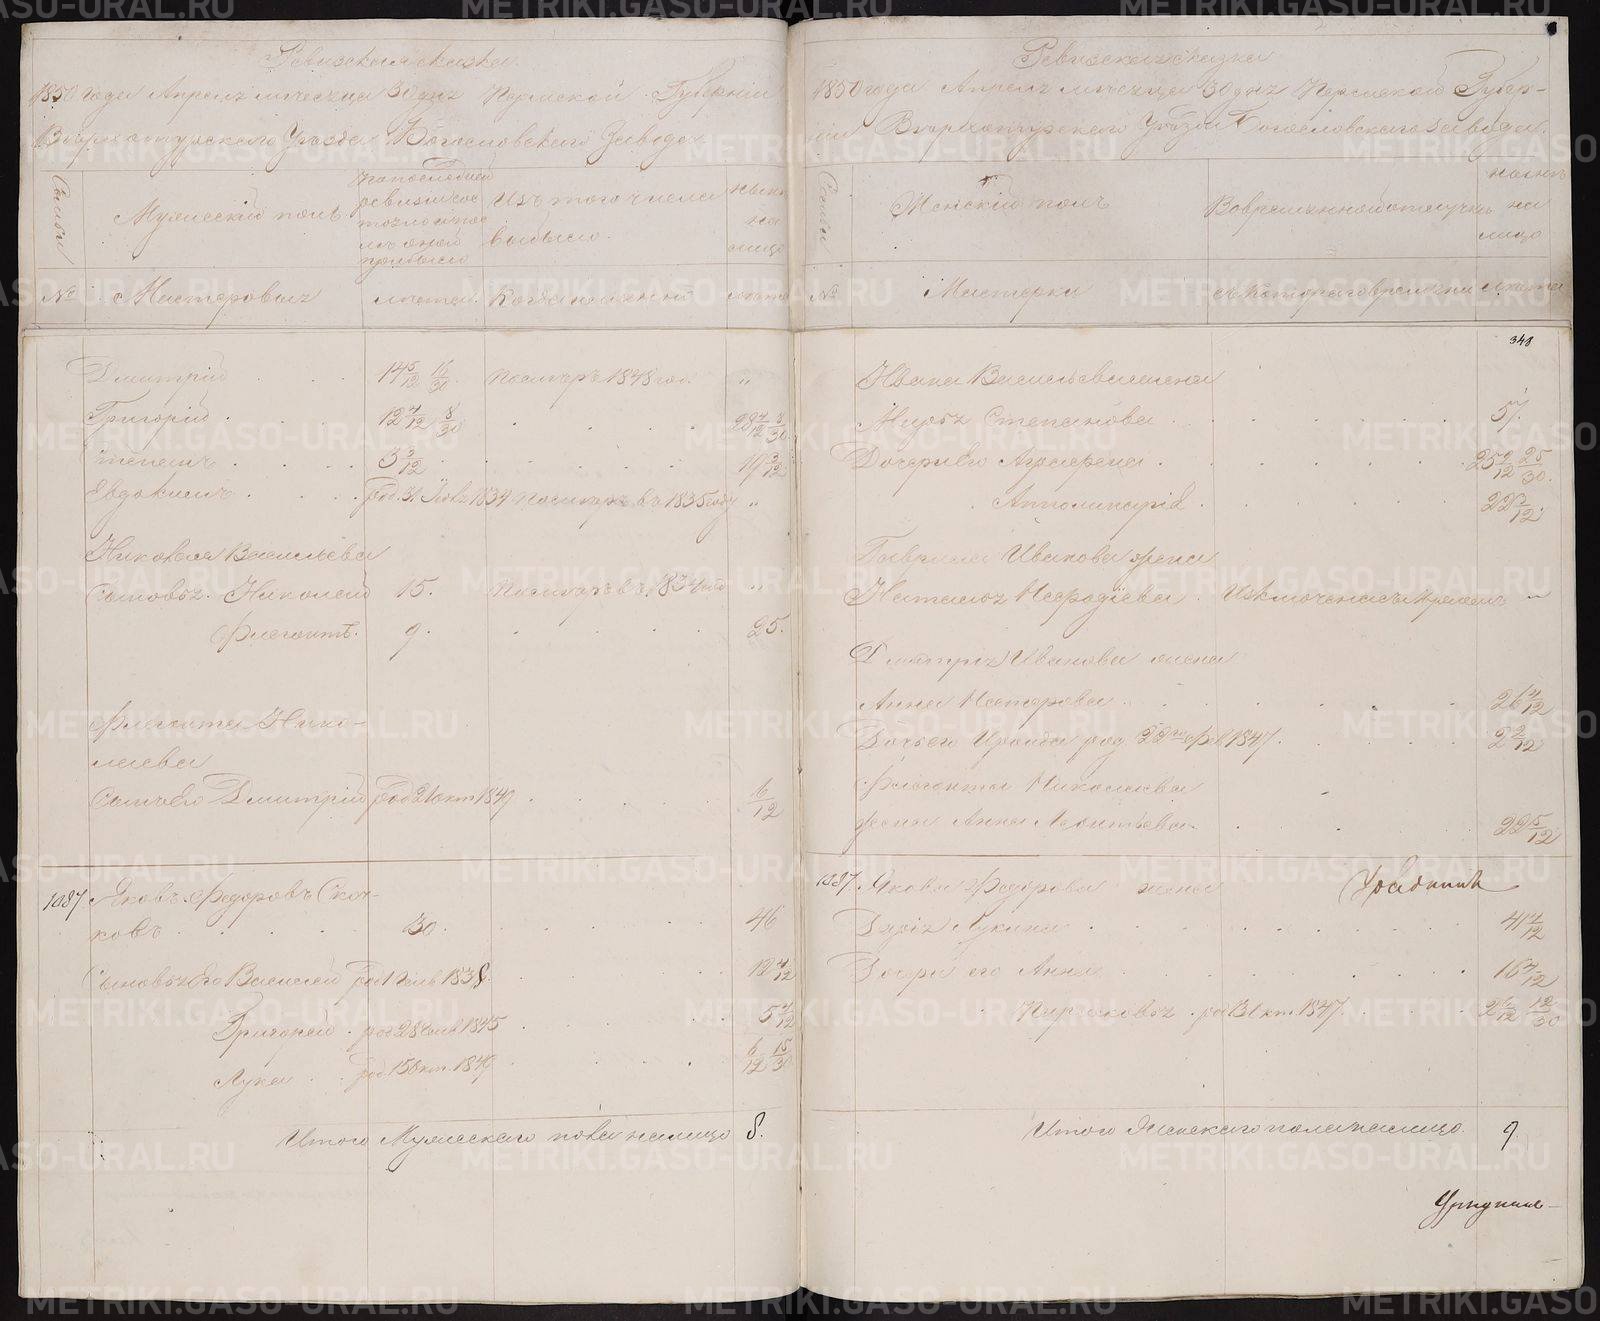 Ревизская сказка
1850 года Апреля месяца 30 дня Пермской Губернии
Верхотурского Уезда Богословского Завода
Семьи
Мужеский полъ
По последней ревизии состояло и после оной прибыло
Изъ того числа выбыло
Ныне на лицо
№
Мастеровыхъ
лета
Когда именно
лета
Дмитрий 14 5/12 16/30 померъ 1848 год. „
Григорий 12 4/12 8/30 28 4/12 8/30
Степанъ 3 3/12 19 3/12
Евдокимъ род. 31 1834 померъ въ 1835 году „
Николая Васильева
Сыновья Николай 15. померъ въ 1834 году „
Флегонтъ. 9. 25.
Флегонта Нико-
лаева
Сынъ его Дмитрий род 21 окт 1849 6/12
1087 Яковъ Федоровъ Скоч-
ковъ 30. 46
Сыновья его Василий 1838. 12 4/12
Григорий род 28 1845 5 4/12
Лука род 15 окт 1849 6/12 15/30
Итого Мужеского пола налицо 8.
Ревизская сказка
1850 года Апреля месяца 30 дня Пермской Губер-
нии Верхотурского Уезда Богословского завода
Семьи
Женский полъ
Во временной отлучке
Ныне на лицо
№
Мастерки
съ которого времени
лета
348
Ивана Васильева жена
Марья Степанова 57.
Дочери его Аграфена 25 2/12 25/30.
Апполинария 22 3/12.
Гаврила Иванова жена
Наталья „
Дмитрия Иванова жена
Анна Несторова 26 4/12
Дочь его Ираида род 22го Фев 1847. 2 2/12
Флегонта Николаева
жена Анна Леонтьева 22 5/12
1087 Якова Федорова жена
Дарья Лукина 41 4/12
Дочери его Анна 16 4/12
род 1847. 2 6/12 12/30
Итого Женского пола налицо. 9